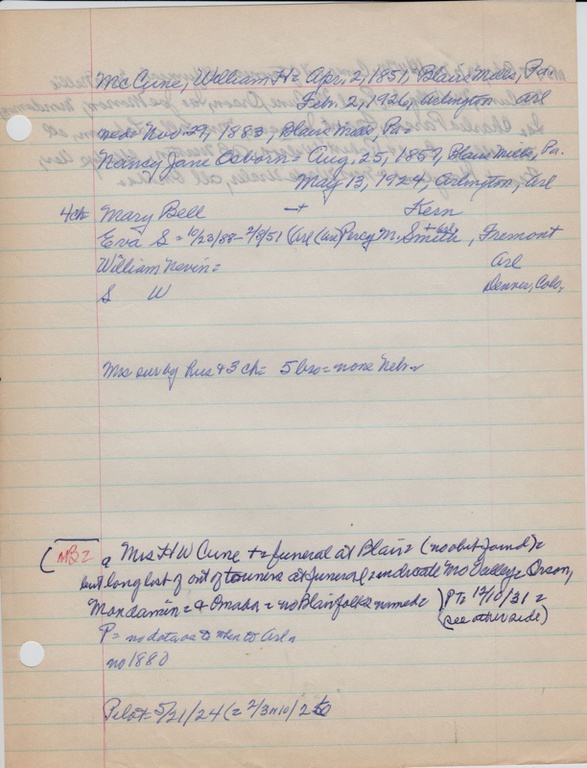 McCune, William H= Apr. 2, 1851, Blairs Mills, Pa.
Feb. 2, 1926, Arlington Arl
md= Nov 29, 1883, Blairs Mills, Pa=
Nancy Jane Osborn= Aug. 25, 1857, Blairs Mills, Pa.
May 13, 1924, Arlington, Arl
4 ch= Mary Bell + Kern
Eva S= 10/23/88- 7/8/51 (Arl Percy M. Smith, Fremont
William Nevin= Arl
S W Denver, Colo.
Mrs sur by hus & 3 ch= 5 bro= none Neb.
MB= a Mrs H W Cune += funeral at Blair= (no obit found)=
but long list of out of towners at funeral= indicate Mo Valley= Orson,
Mondamin= & Omaha= no Blair folks named= PT= 12/10/31=
(see other side)
P= no data as to when to Arl.
no 1880
Pilot= 5/21/24 (= 2/3 10/26